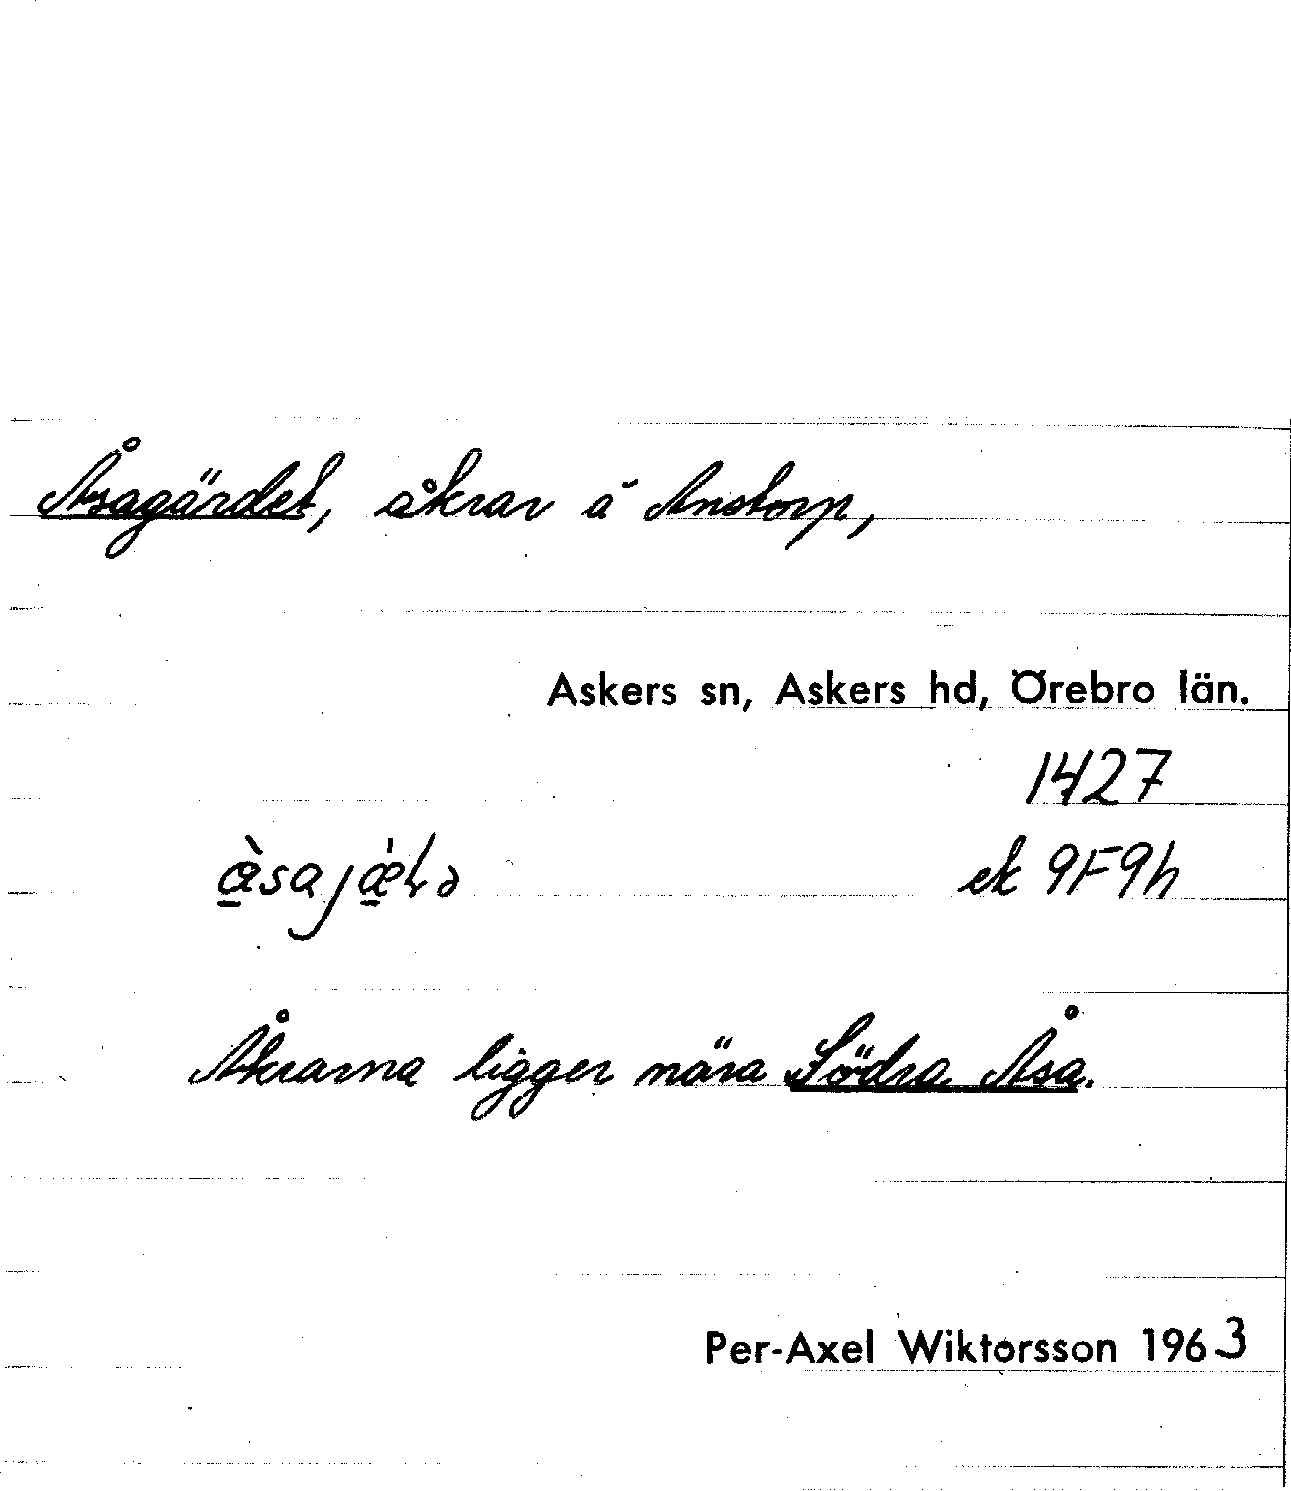 Åsagärdet, åkrar å Anstorp,
Askers sn, Askers hd, Örebro län.
1427
ek 9F9h
Åkrarna ligger nära Södra Åsa.
Per-Axel Wiktorsson 1963